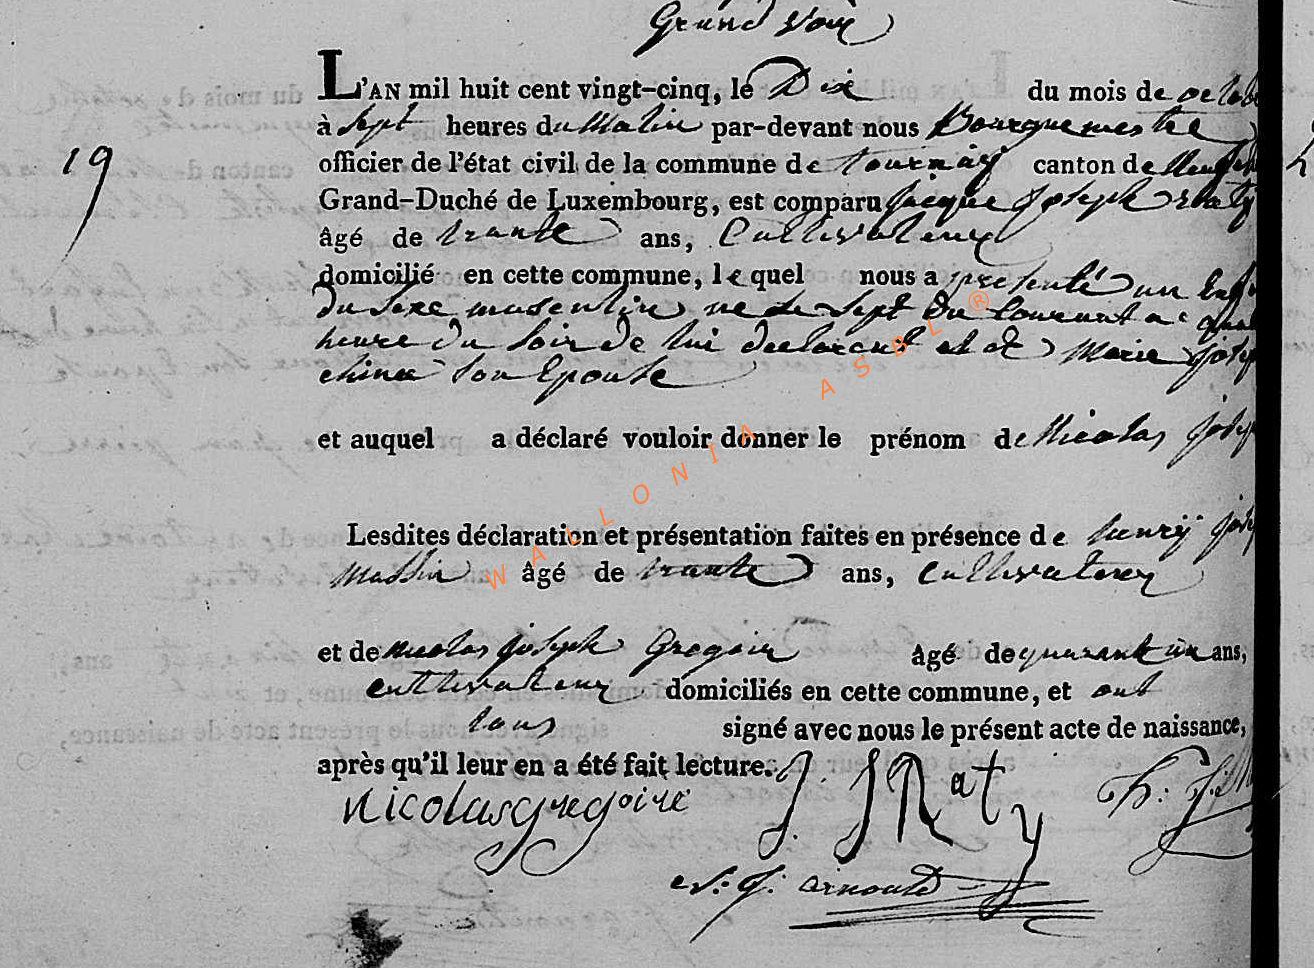 Grand Voir
L'AN mil huit cent vingt-cinq, le Dix du mois de octob
19
à Sept heures du Matin par-devant nous Bourguemestre
officier de l'état civil de la commune de tournay canton de Neufch
Grand-Duché de Luxembourg, est comparu Jacque Joseph Raty
âgé de trante ans, Cultivateur
domicilié en cette commune, lequel nous a présenté un Enf
du sexe masculin né le Sept du Courant a
heure du Soir de lui declarant et de Marie jos
son Epouse
et auquel a déclaré vouloir donner le prénom de Nicolas jos
Lesdites déclaration et présentation faites en présence de henry jos
Massin âgé de trante ans, Cultivateur
et de Nicolas joseph Gregoir âgé de quarant un ans,
cultivateur domiciliés en cette commune, et ont
tous signé avec nous le présent acte de naissance,
après qu'il leur en a été fait lecture.
nicolas gregoire J. J Raty h: J: M
N: J: arnould
WALLONIA ASBL ®